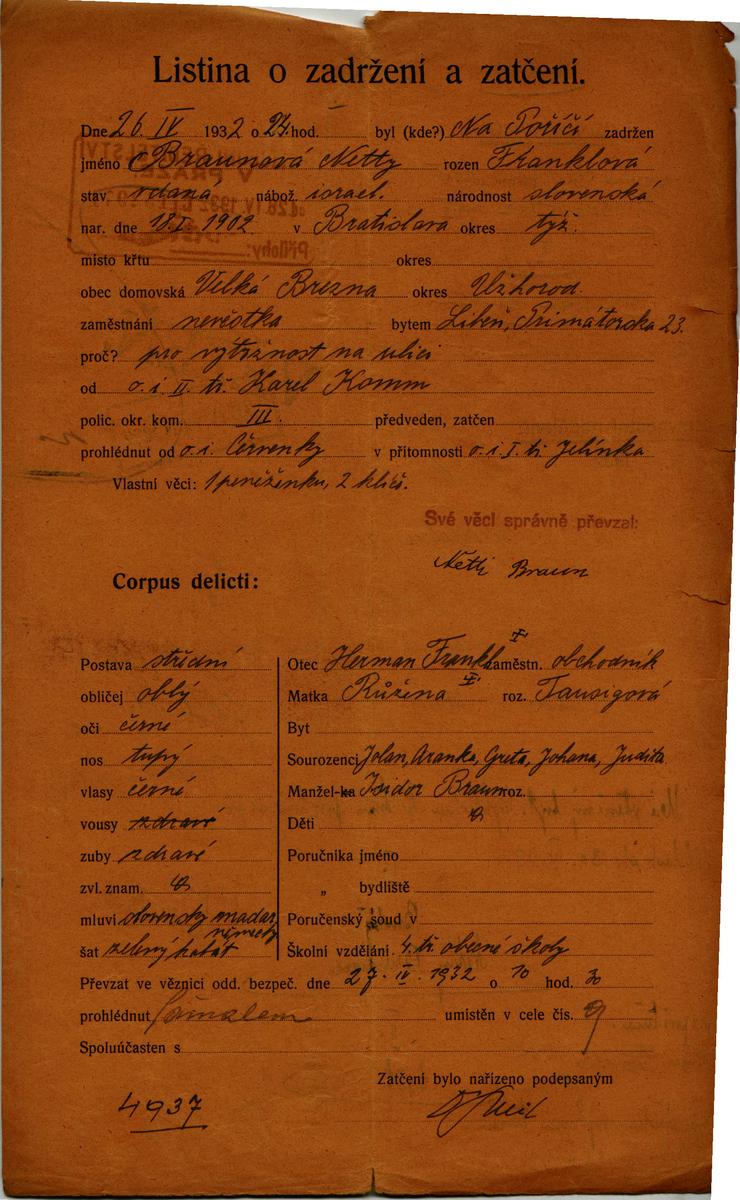 Listina o zadržení a zatčení.
Dne 26. IV 1932 o 24 hod. byl (kde?) Na Poříčí zadržen
jméno Braunová Netty rozen Franklová
stav vdaná nábož. israel. národnost slovenská
nar. dne 18.I. 1902 v Bratislava okres týž.
místo křtu okres
obec domovská Velká Brezna okres Užhorod.
zaměstnání nevěstka bytem Libeň, Primátorska 23.
proč? pro výtržnost na ulici
od o. i. II. tř. Karel Komm
polic. okr. kom. III. předveden, zatčen
prohlédnut od o. i. Červenky v přítomnosti o. i. I. tř. Jelínka
Vlastní věci: 1 peněženku, 2 klíče.
Své věci správně převzal:
Netti Braun
Corpus delicti:
Postava střední
obličej oblý
oči černé
nos tupý
vlasy černé
vousy zdravé
zuby zdravé
zvl. znam. 0
mluví slovensky maďar. německy
šat zelený kabát
Otec Herman Frankl zaměstn. obchodník
Matka Růžena roz. Tausigová
Byt
Sourozenci Jolan, Aranka, Greta, Johana, Judita
Manžel-ka Isidor Braun roz.
Děti 0
Poručníka jméno
„ bydliště
Poručenský soud v
Školní vzdělání 4. tř. obecné školy
Převzat ve věznici odd. bezpeč. dne 27. IV. 1932 o 10 hod. 30
prohlédnut umístěn v cele čís. 9
Spoluúčasten s
Zatčení bylo nařízeno podepsaným
4937